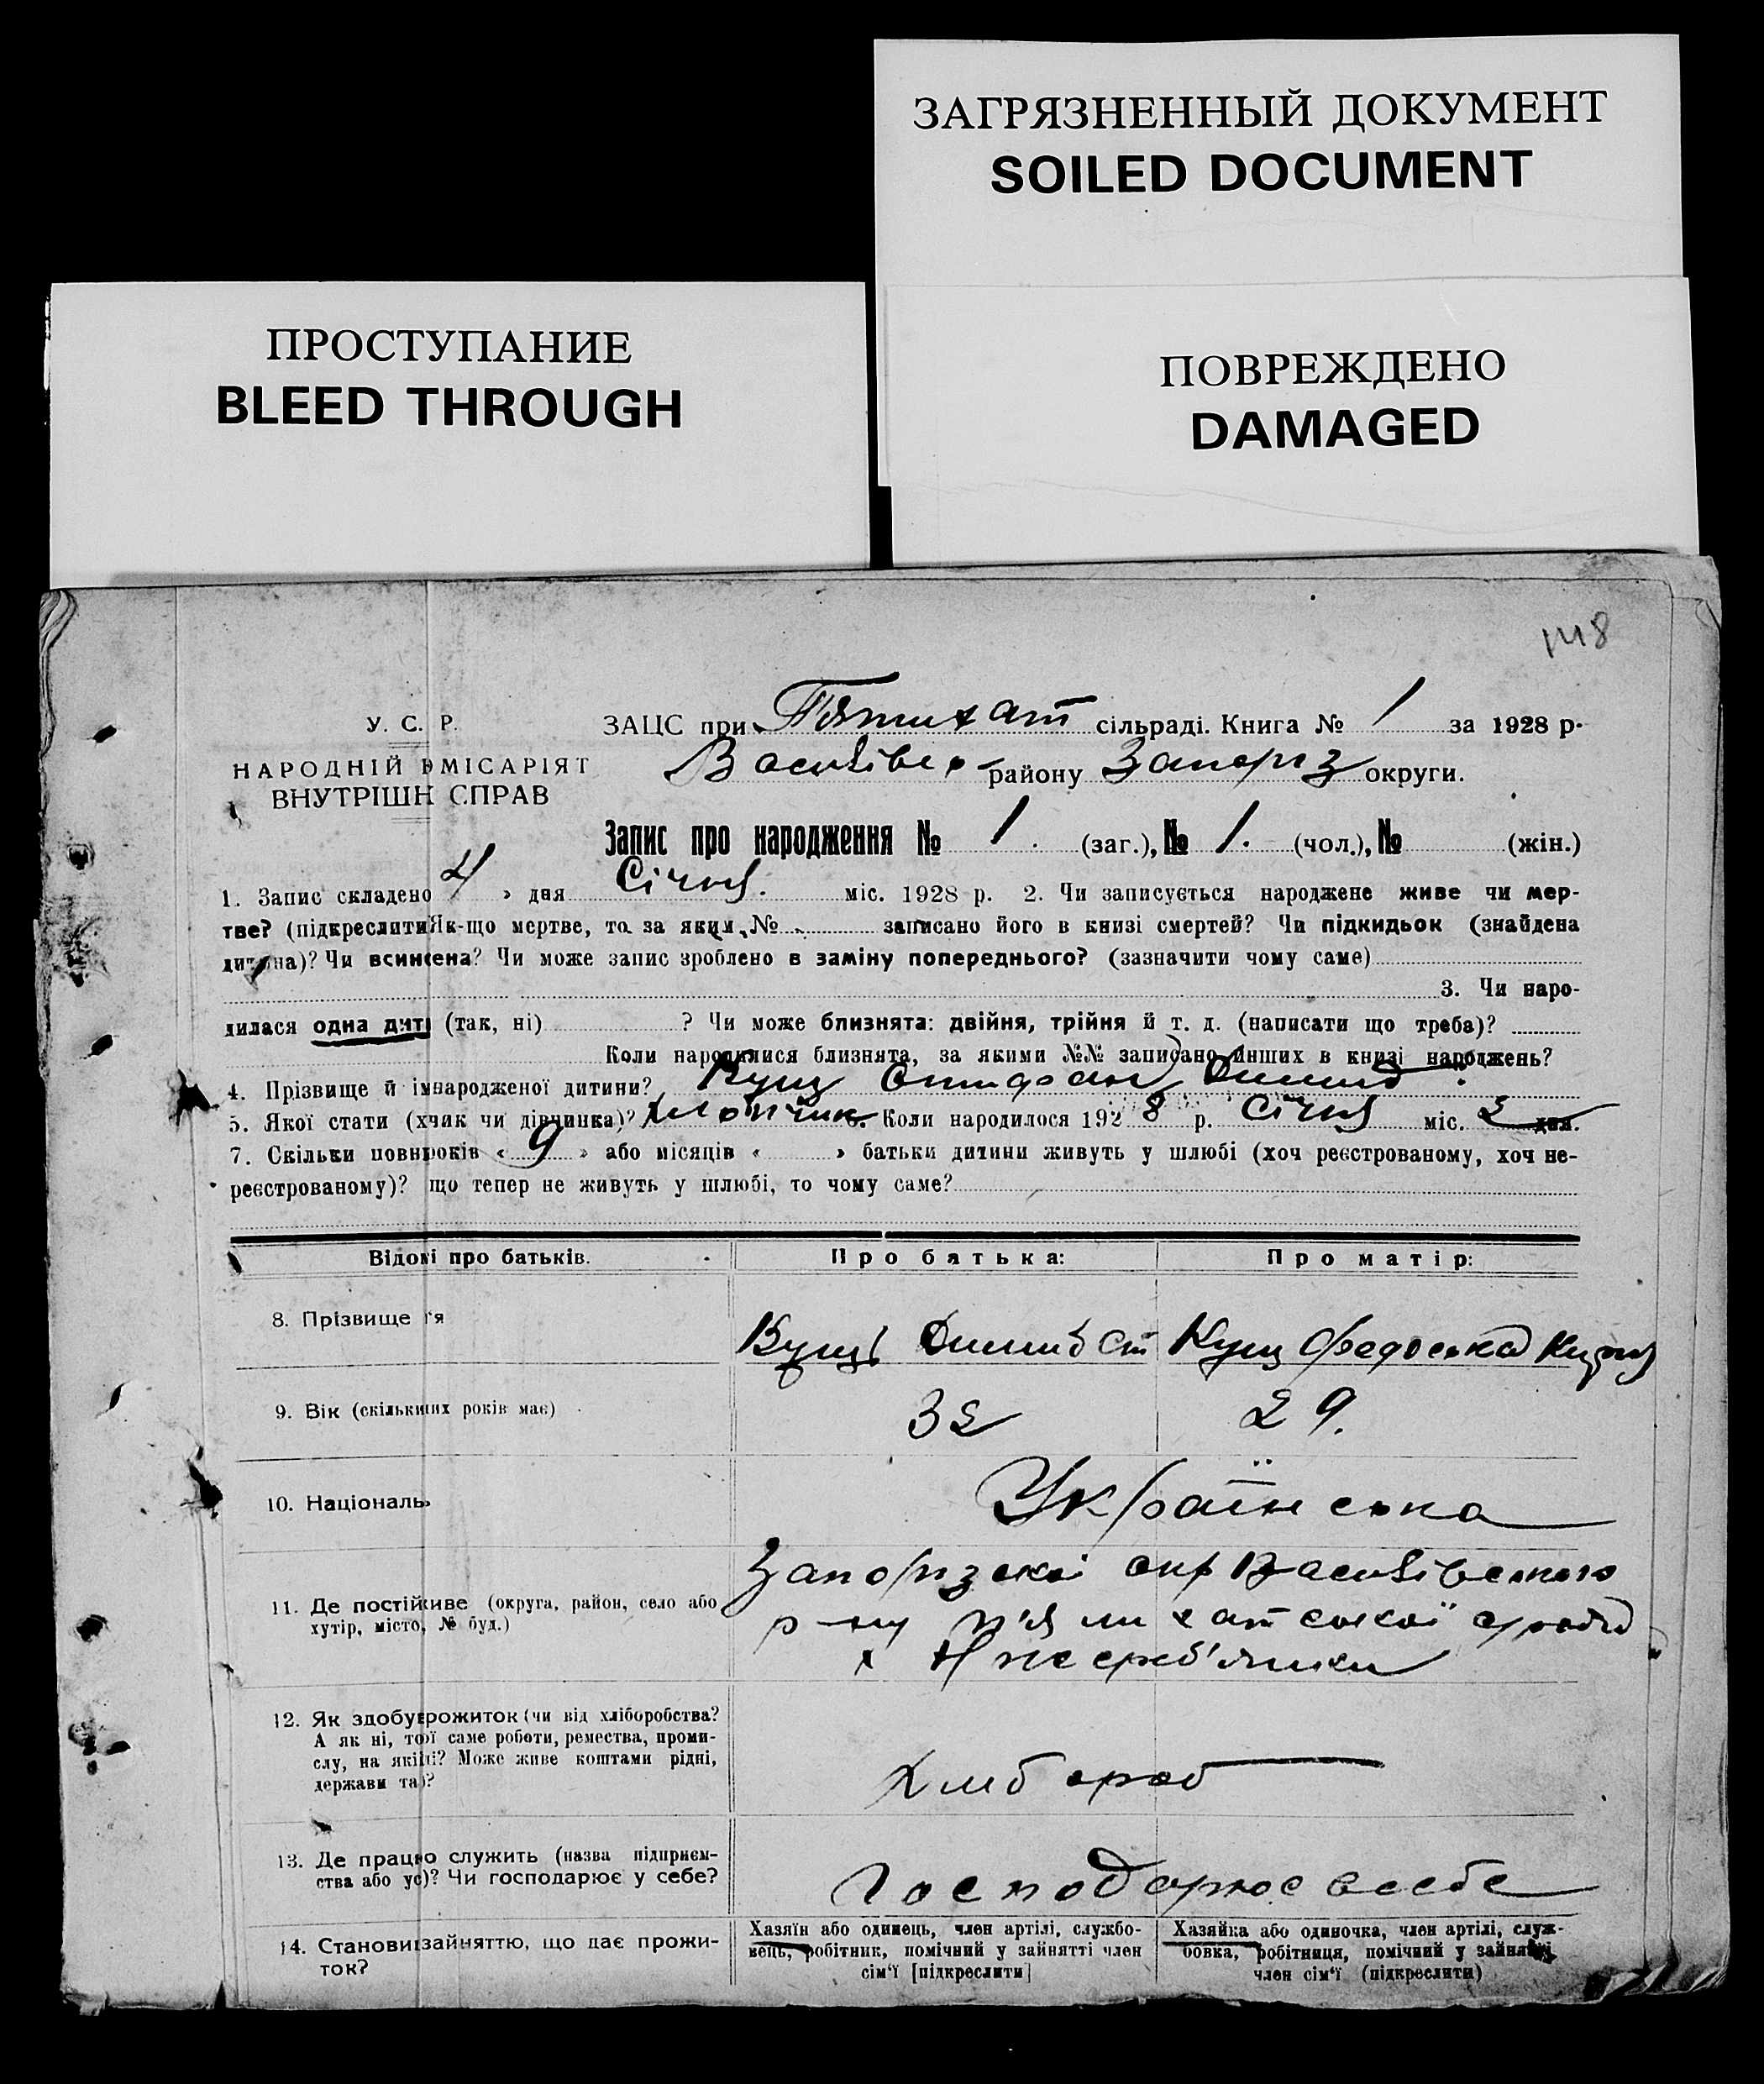 ЗАГРЯЗНЕННЫЙ ДОКУМЕНТ
SOILED DOCUMENT
ПРОСТУПАНИЕ
BLEED THROUGH
ПОВРЕЖДЕНО
DAMAGED
148
У. С. Р.
НАРОДНІЙ МІСАРІЯТ
ВНУТРІШН СПРАВ
ЗАЦС при Пятихат сільраді. Книга № 1 за 1928 р.
Василівс району Запоріз округи.
Запис про народження № 1. (заг.), № 1. (чол.), № (жін.)
1. Запис складено 4 » дня Січня. міс. 1928 р. 2. Чи записується народжене живе чи мер-
тве? (підкреслити Як-що мертве, то за яким № записано його в книзі смертей? Чи підкидьок (знайдена
дитина)? Чи всинена? Чи може запис зроблено в заміну попереднього? (зазначити чому саме)
3. Чи наро-
дилася одна дит (так, ні) ? Чи може близнята: двійня, трійня й т. д. (написати що треба)?
Коли народилися близнята, за якими №№ записано инших в книзі народжень?
4. Прізвище й ім народженої дитини? Кущ Дмит
5. Якої стати (хчик чи дівчинка)? Хлопчик 6. Коли народилося 1928 р. Січня міс. 2 дня.
7. Скільки повни років « 9 » або місяців « » батьки дитини живуть у шлюбі (хоч реєстрованому, хоч не-
реєстрованому)? що тепер не живуть у шлюбі, то чому саме?
Відомі про батьків. Про батька: Про матір:
8. Прізвище 'я
Кущ Дмит Ст Кущ Федоська
9. Вік (скільки них років має) 32 29.
10. Націонал Українська
11. Де постій живе (округа, район, село або
хутір, місто, № буд.)
Запорізскої окр Василівського
р-ну П'ятихатської с/ради
х
12. Як здобу прожиток (чи від хліборобства?
А як ні, то ї саме роботи, ремества, проми-
слу, на якій і? Може живе коштами рідні,
держави та )?
Хлібороб
13. Де працю служить (назва підприєм-
ства або ус)? Чи господарює у себе?
Господарює в себе
14. Станови зайняттю, що дає прожи-
ток?
Хазяїн або одинець, член артілі, службо-
вець, робітник, помічний у зайнятті член
сім'ї [підкреслити]
Хазяйка або одиночка, член артілі, служ-
бовка, робітниця, помічний у зайнятті
член сім'ї (підкреслити)